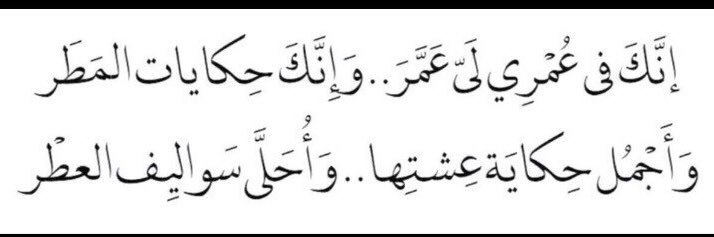 إِنَّكَ فى عُمْرِي لَىّ عَمَّرَ..وَإِنَّكَ حِكايات المَطَر
وَأَجْمُل حِكايَة عِشتِها..وَأُحَلَّى سَواليِف العطْر